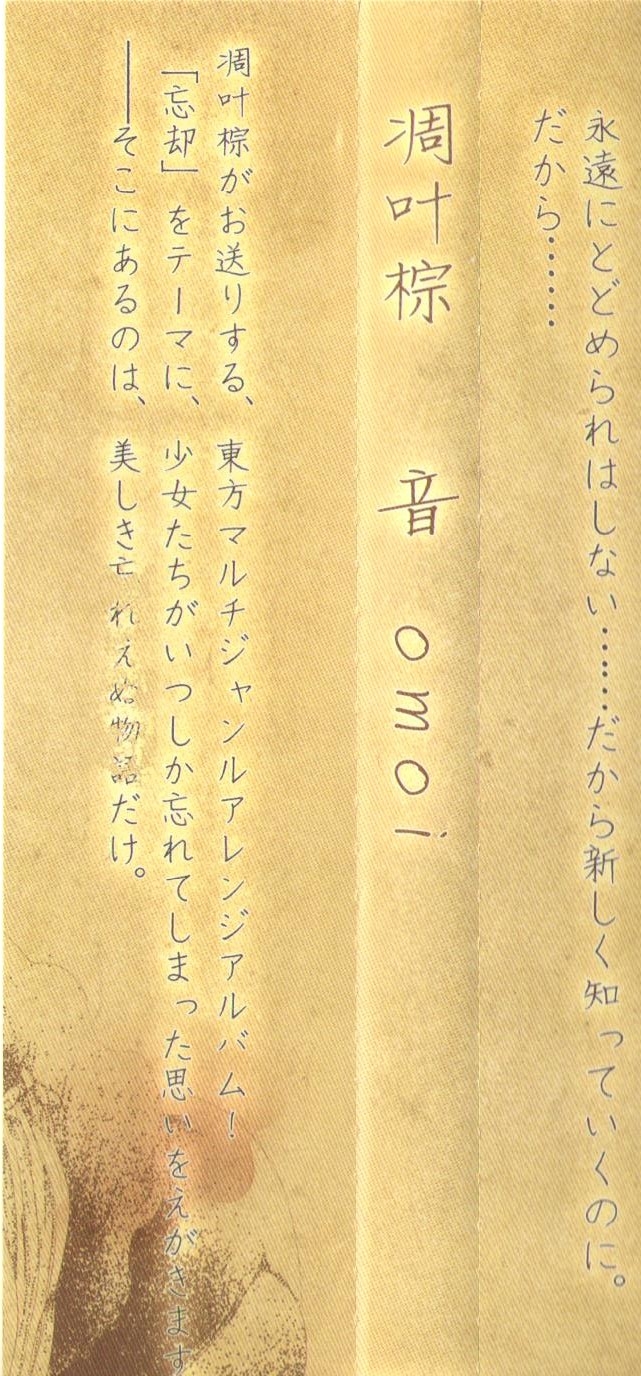 永遠にとどめられはしない……だから新しく知っていくのに。
だから……
凋叶棕　音　omoi
凋叶棕がお送りする、東方マルチジャンルアレンジアルバム！
「忘却」をテーマに、少女たちがいつしか忘れてしまった思いをえがきます
――そこにあるのは、美しき亡れえぬ物品だけ。